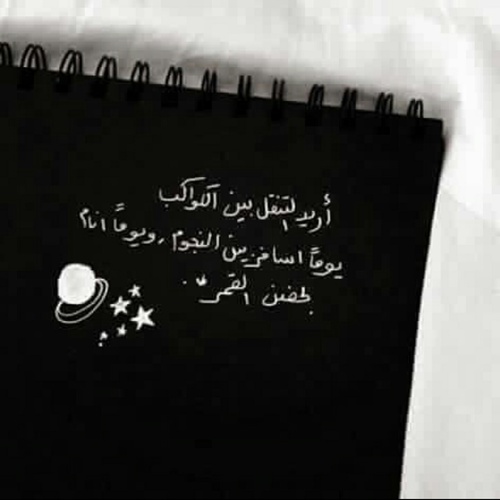 أريد التنقل بين الكواكب
يوماً اسافر بين النجوم ، ويوماً انام
بحضن القمر